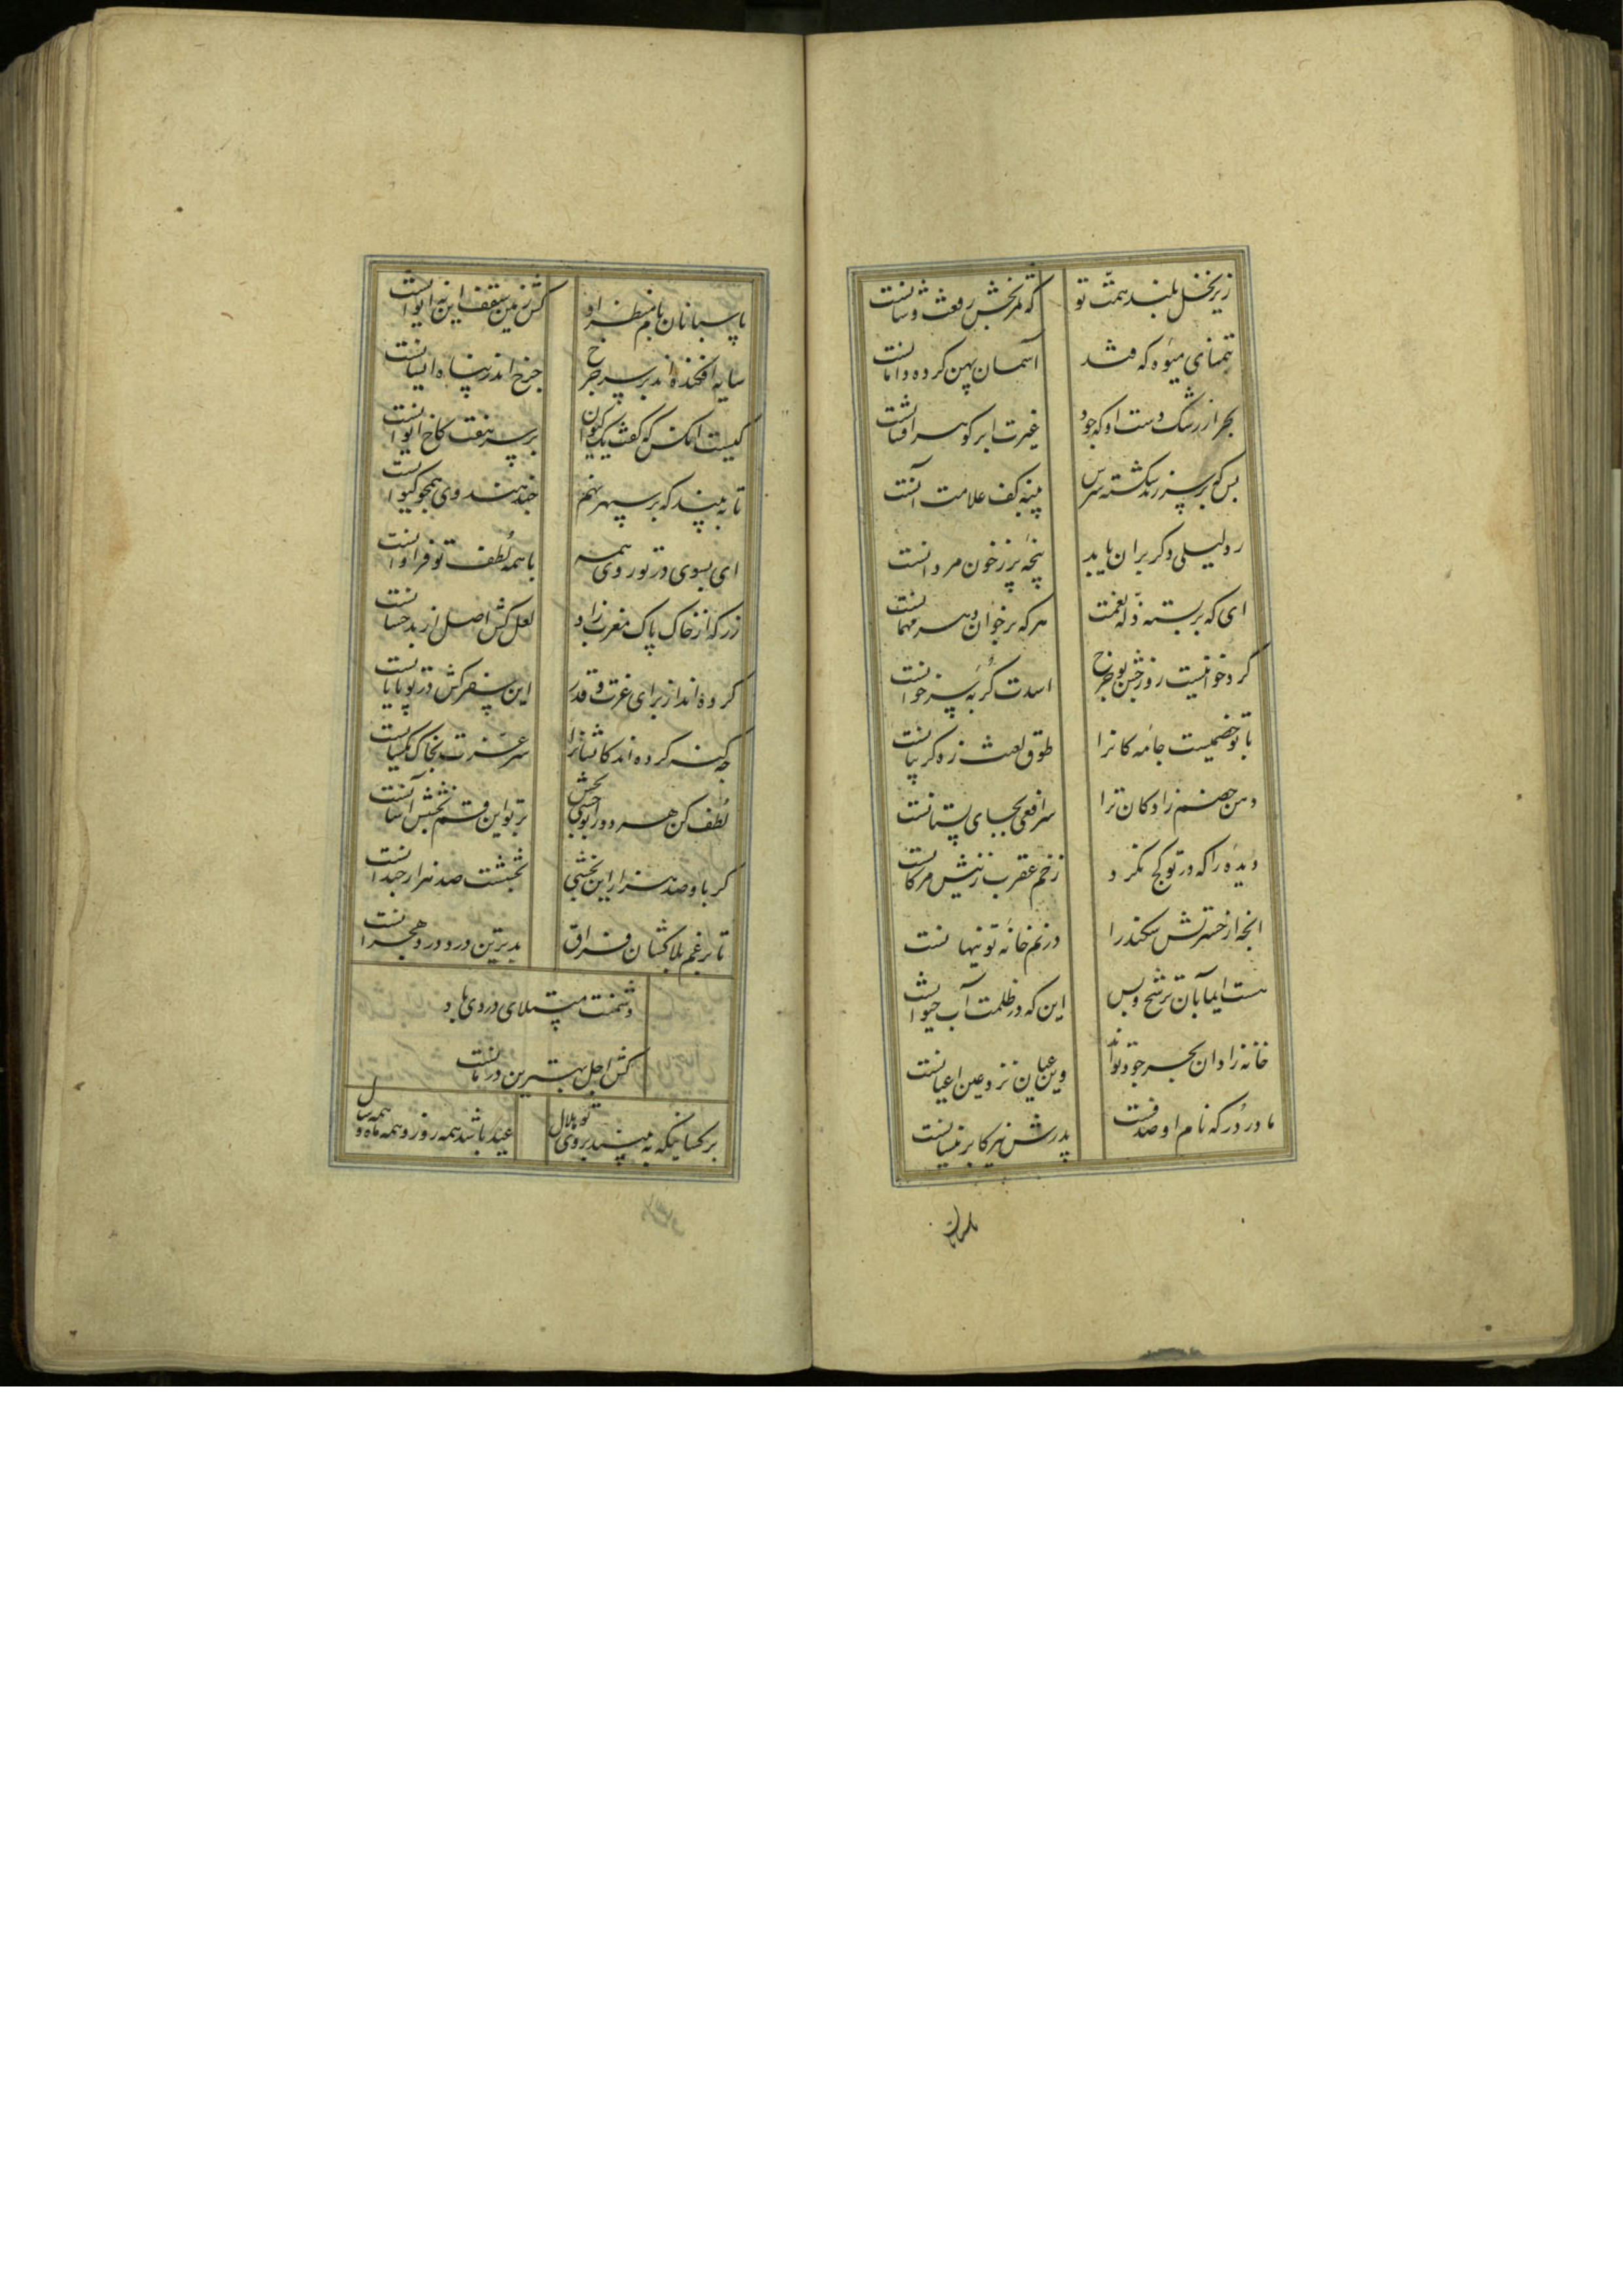 زیر نخل بلند همت تو که ثمربخش رفعت و شانست
بتمنای میوه که فتد آسمان پهن کرده دامانست
بحر از رشک دست او که جود غیرت ابر گوهر افشانست
بس که بر سر زند شکسته سرش پینه کف علامت آنست
رد لیلی و کر بران باید پنجه پر ز خون مردانست
ای که بر بسته ذله نعمت هر که بر خوان دهر مهمانست
گرد خوانیست روز جشن تو چرخ اسدت گربه سر خوانست
با تو خصمیست جامه کانرا طوق لعنت زه گریبانست
دهن خصم زادگان ترا سر افعی بجای پستانست
دیده را که در تو کج نگرد زخم عقرب ز نیش مژگانست
آنچه از حسرتش سکندر را در نم خانه تو پنهانست
هست ایما بآن ترشح و بس این که در ظلمت آب حیوانست
خانه زادان بحر جود تواند وین عیان نزد عین اعیانست
مادر در که نام او صدفست پدرش نیز کابر نیسانست
پاسبانان
پاسبانان بام منظر او کش زمین سقف این نه ایوانست
سایه افکنده اند بر سر چرخ چرخ اندر پناه ایشانست
کیست آنکس که گفت یک کیوان بر سر هفت کاخ ایوانست
تا به بیند که بر سپهر نهم چند هندوی همچو کیوانست
ای بسوی در تو روی همه با همه لطف تو فراوانست
زر که از خاک پاک مغرب زاد لعل کش اصل از بدخشانست
کرده اند از برای عزت و قدر این سفر کش در تو پایانست
چه گنه کرده اند کایشانرا سر عزت بخاک یکسانست
لطف کن هر دو را بوحشی بخش بر تو این قسم بخشش آسانست
گر باو صد هزار این بخشی بخششت صد هزار چندانست
تا بزعم بلاکشان فراق بدترین درد درد هجرانست
دشمنت مبتلای دردی باد
کش اجل بهترین درمانست
بر کسانیکه به بینند بروی تو هلال عید باشد همه روز و همه ماه و همه سال